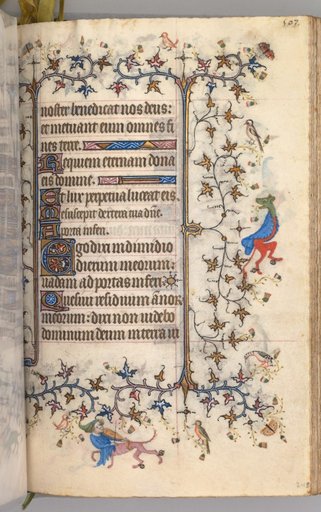 107
noster benedicat nos deus:
et metuant eum omnes fi
nes terre.
Requiem eternam dona
eis domine.
Et lux perpetua luceat eis.
Me suscepit dextera tua dñe.
A porta inferi.
Ego dixi in dimidio
dierum meorum:
vadam ad portas inferi.
Quesivi residuum ãnorꝫ
meorum: dixi non videbo
dominum deum in terra vi